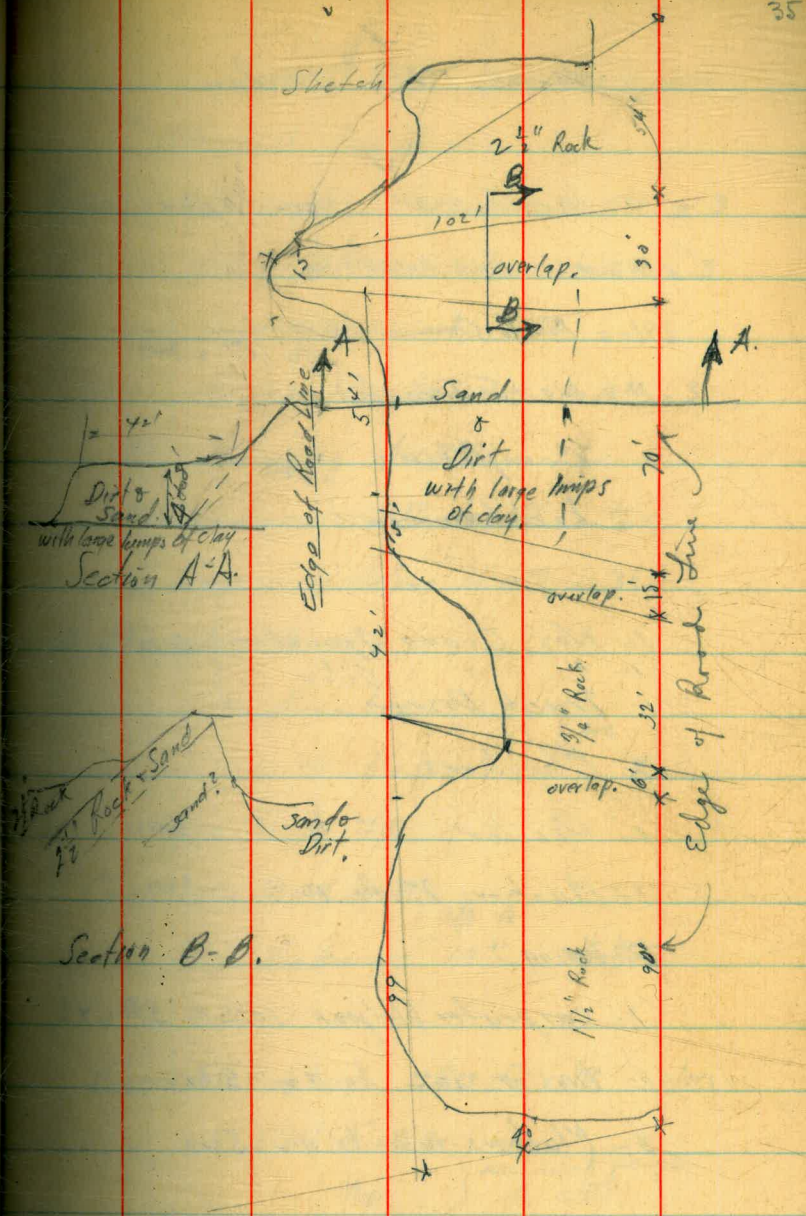 35
Sketch
54'
2 1/2" Rock
B
102'
15'
overlap.
30'
B
A
A.
Edge of Road Line
54'
Sand
&
Dirt
with large lumps
of clay.
70'
42'
Dirt &
Sand.
with large lumps of clay
Section A-A.
15'
overlap.
15'
42'
3/4" Rock
32'
Edge of Road Line
6'
overlap.
Rock
2 1/2" Rock & Sand
sand?
Sand &
Dirt.
Section B-B.
99
1 1/2" Rock
90'